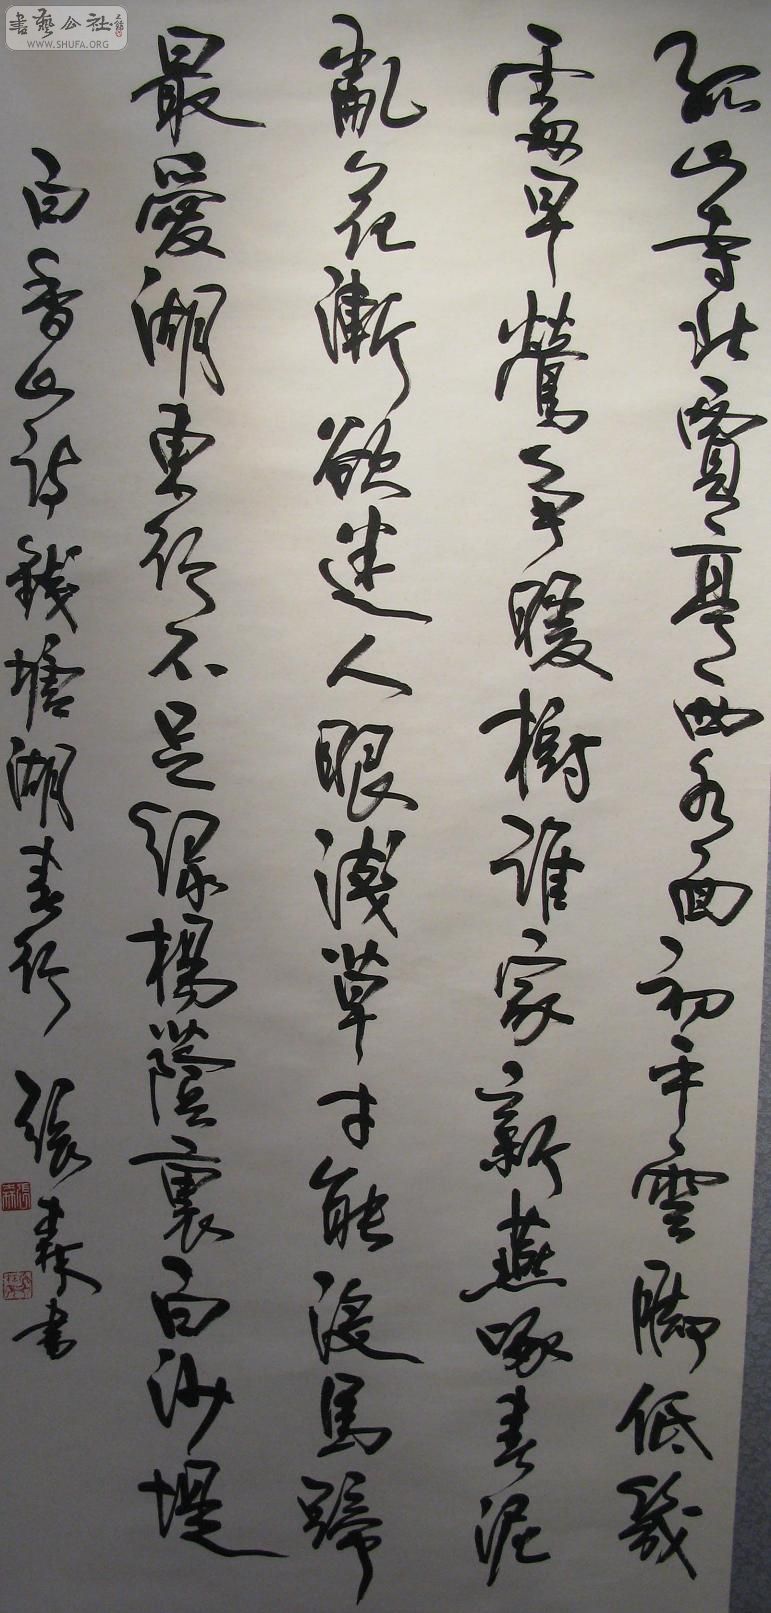 孤山寺北賈亭西水面初平雲脚低幾
處早鶯爭暖樹誰家新燕啄春泥
亂花漸欲迷人眼淺草才能沒馬蹄
最愛湖東行不足綠楊蔭裏白沙堤
白香山詩錢塘湖春行 張森書
張森
書藝公社
WWW.SHUFA.ORG